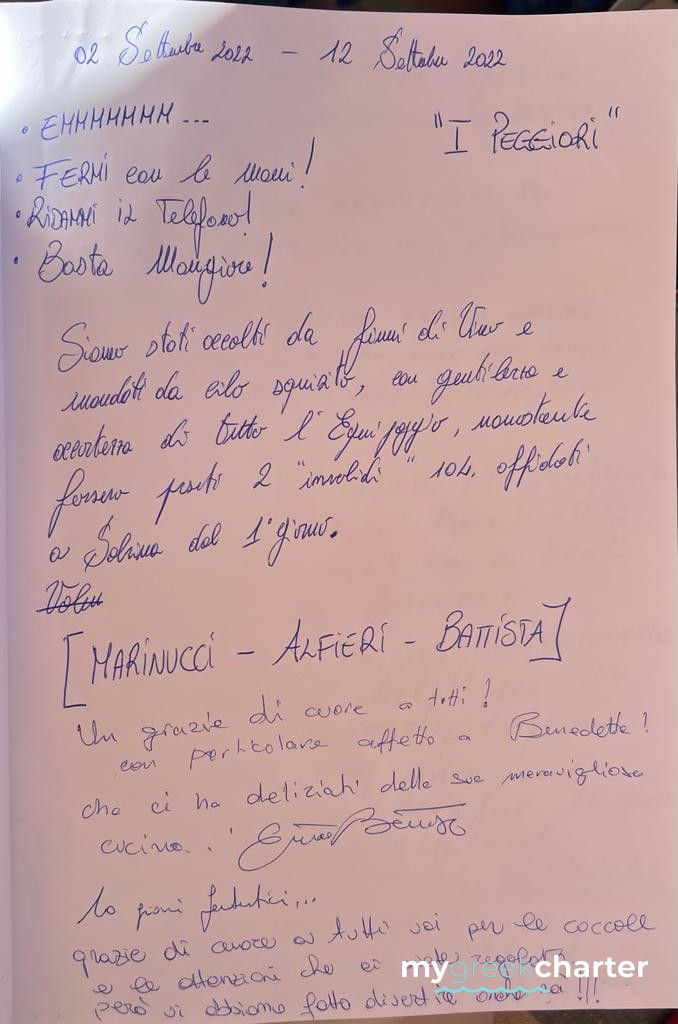 02 Settembre 2022 - 12 Settembre 2022
• EHHHHHHH...
"I PEGGIORI"
• FERMI con le mani!
• RIDAMMI il Telefono!
• Basta Mangiare!
Siamo stati accolti da fiumi di Vino e
inondati da cibo squisito, con gentilezza e
accortezza di tutto l'Equipaggio, nonostante
fossero presenti 2 "invalidi" 104. affidati
a Sabrina dal 1° giorno.
[MARINUCCI - ALFIERI - BATTISTA]
Un grazie di cuore a tutti!
con particolare affetto a Benedetta!
che ci ha deliziati della sua meravigliosa
cucina..!
10 giorni fantastici...
grazie di cuore a tutti voi per le coccole
e le attenzioni che ci avete regalato
però vi abbiamo fatto divertire anche noi!!!
mygreekcharter